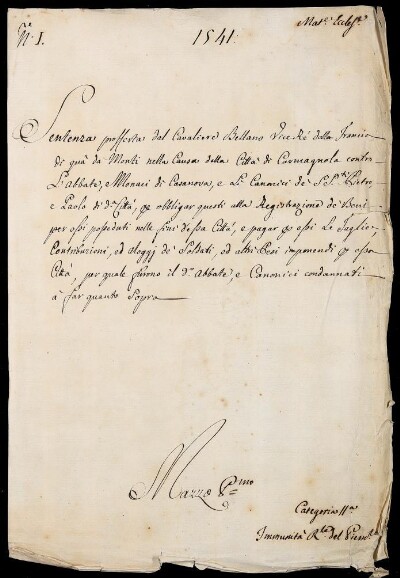 Mat.e Eccles.e
N.o I. 1541.
Sentenza profferta dal Cavaliere Bellano Vice Ré della Francia
di quà da Monti nella Causa della Città di Carmagnola contro
L'abbate, e Monaci di Casanova, e Li Canonici de S.S.ti Pietro,
e Paolo di d.a Città, p obbligar questi alla Registrazione de Beni
per essi posseduti nelle fini d'essa Città, e pagar p essi Le Taglie,
Contribuzioni, ed alloggj de Soldati, ed altri Pesi imponendi p essa
Città, per quale furono il d.o abbate, e Canonici condannati
à far quanto Sopra
Mazzo P.mo
Categoria II.a
Immunità R.le del